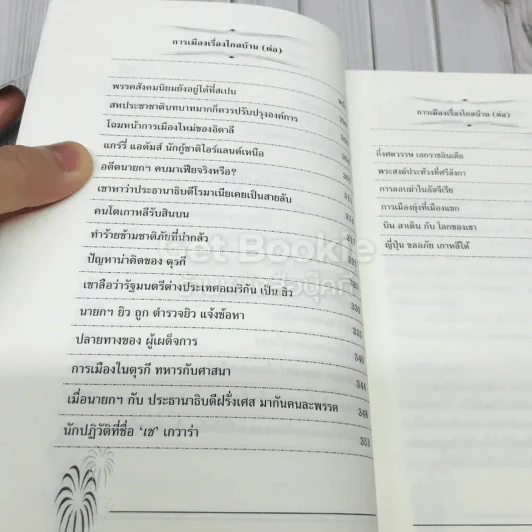 การเมืองเรื่องไกลบ้าน (ต่อ)
พรรคสังคมนิยมยังอยู่ได้ที่สเปน
สหประชาชาติบทบาทมากก็ควรปรับปรุงองค์การ
โฉมหน้าการเมืองใหม่ของอิตาลี
แกร์รี่ แอดัมส์ นักกู้ชาติไอร์แลนด์เหนือ
อดีตนายกฯ คบมาเฟียจริงหรือ?
เขาหาว่าประธานาธิบดีโรมาเนียเคยเป็นสายลับ
คนโตเกาหลีรับสินบน
ทำร้ายข้ามชาติภัยที่น่ากลัว
ปัญหาน่าคิดของ ตุรกี
เขาลือว่ารัฐมนตรีต่างประเทศอเมริกัน เป็น ยิว
นายกฯ ยิว ถูก ตำรวจยิว แจ้งข้อหา
ปลายทางของ ผู้เผด็จการ 340
การเมืองในตุรกี ทหารกับศาสนา 344
เมื่อนายกฯ กับ ประธานาธิบดีฝรั่งเศส มากันคนละพรรค 348
นักปฏิวัติที่ชื่อ ‘เช’ เกวาร่า 353
การเมืองเรื่องไกลบ้าน (ต่อ)
กึ่งศตวรรษ เอกราชอินเดีย
พระสงฆ์ประท้วงที่ศรีลังกา
การลอบฆ่าในอัลจีเรีย
การเมืองยุ่งที่เมืองแขก
บิน ลาเดน กับ โลกของเขา
ญี่ปุ่น ขออภัย เกาหลีใต้
Get Bookie